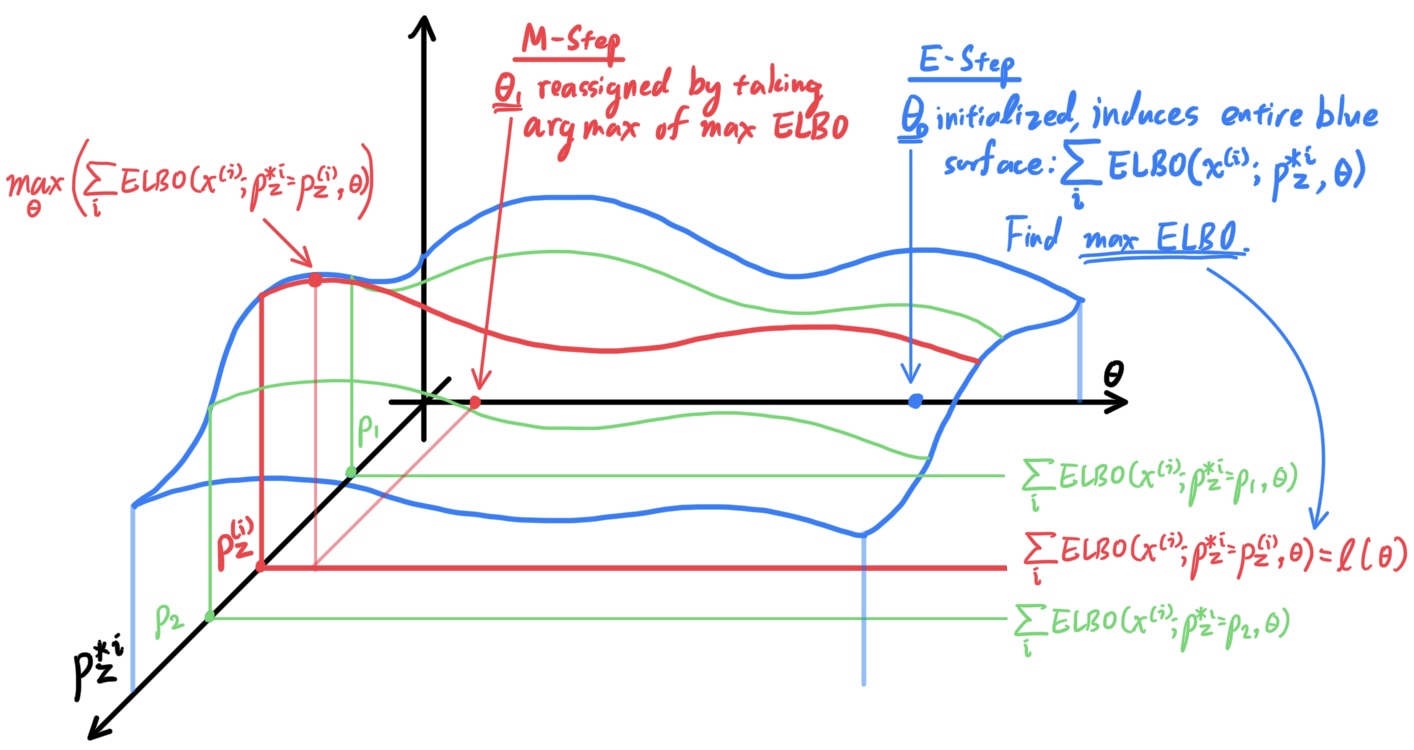 M-Step
θ₁ reassigned by taking
arg max of max ELBO
E-Step
θ₀ initialized, induces entire blue
surface: ∑ᵢ ELBO(x⁽ⁱ⁾; p_z^{*i}, θ)
Find max ELBO.
max_θ (∑ᵢ ELBO(x⁽ⁱ⁾; p_z^{*i} = p_z^{(i)}, θ))
θ
p₁
∑ᵢ ELBO(x⁽ⁱ⁾; p_z^{*i} = p₁, θ)
p_z^{(i)}
∑ᵢ ELBO(x⁽ⁱ⁾; p_z^{*i} = p_z^{(i)}, θ) = l(θ)
p₂
∑ᵢ ELBO(x⁽ⁱ⁾; p_z^{*i} = p₂, θ)
p_z^{*i}